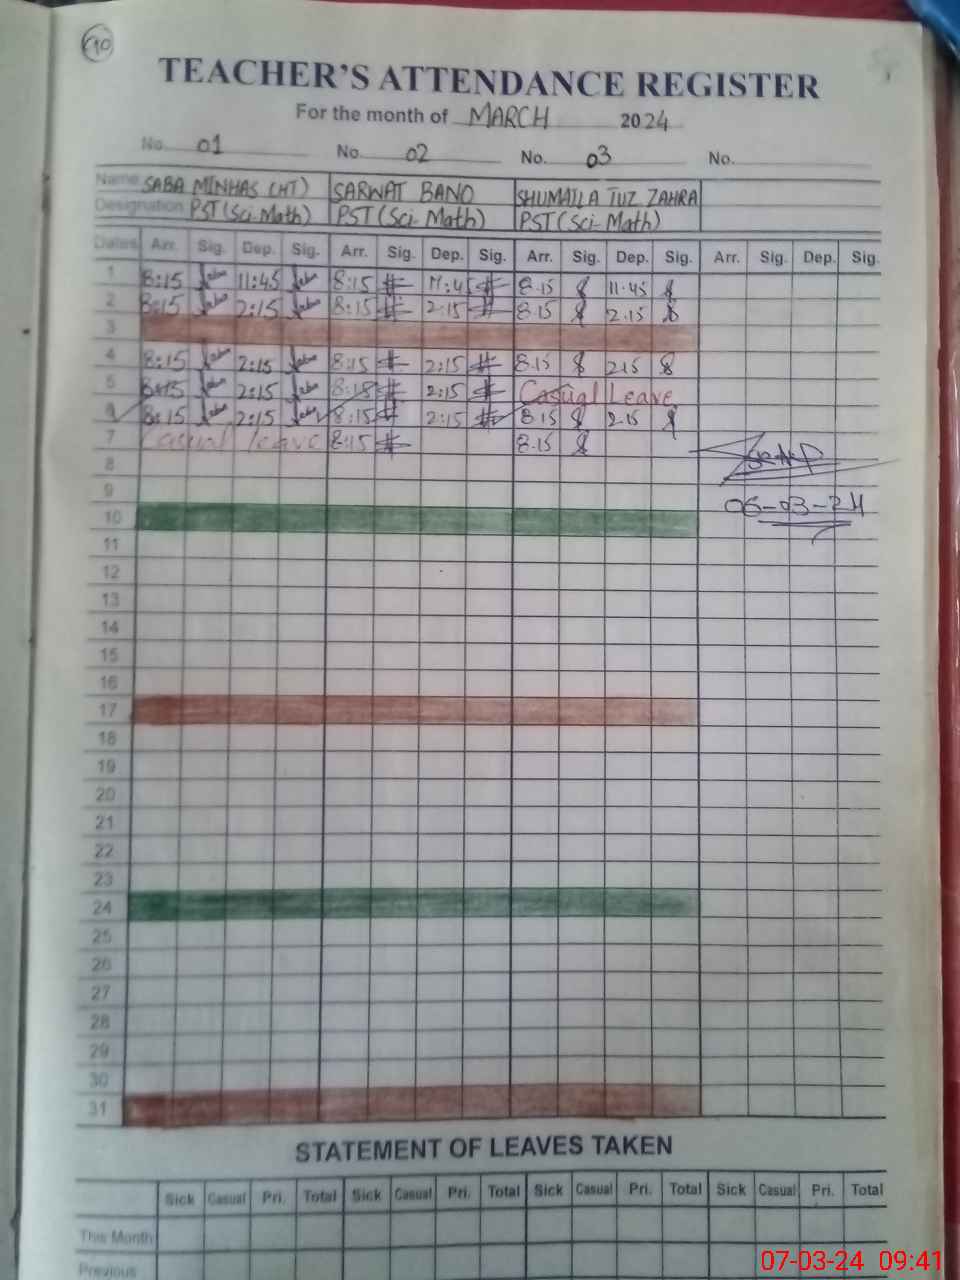 10
TEACHER'S ATTENDANCE REGISTER
For the month of MARCH 2024
No. 01 No. 02 No. 03 No.
Name SABA MINHAS (HT) SARWAT BANO SHUMAILA TUZ ZAHRA
Designation PST (Sci-Math) PST (Sci-Math) PST (Sci-Math)
Dates Arr. Sig. Dep. Sig. Arr. Sig. Dep. Sig. Arr. Sig. Dep. Sig. Arr. Sig. Dep. Sig.
1 8:15 11:45 8:15 11:45 8.15 11.45
2 8:15 2:15 8:15 2:15 8.15 2.15
3
4 8:15 2:15 8:15 2:15 8.15 2.15
5 8:15 2:15 8:15 2:15 Casual Leave
6 8:15 2:15 8:15 2:15 8.15 2.15
7 Casual leave 8:15 8.15
8
9
06-03-24
10
11
12
13
14
15
16
17
18
19
20
21
22
23
24
25
26
27
28
29
30
31
STATEMENT OF LEAVES TAKEN
Sick Casual Pri. Total Sick Casual Pri. Total Sick Casual Pri. Total Sick Casual Pri. Total
This Month
Previous
07-03-24 09:41